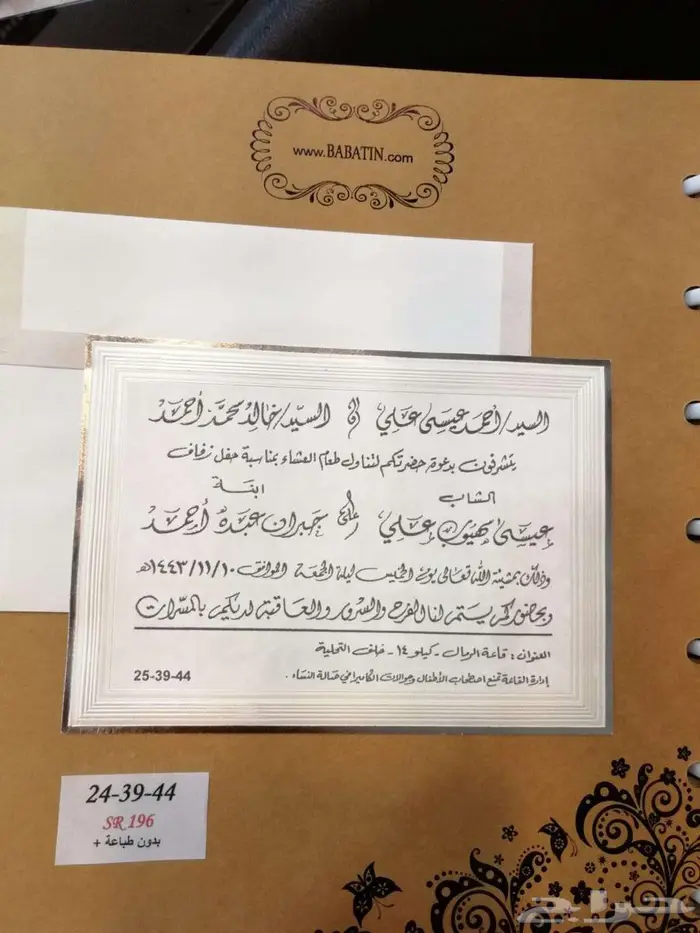 www.BABATIN.com
السيد/أحمد عيسى علي و السيد/خالد محمد أحمد
يتشرفون بدعوة حضرتكم لتناول طعام العشاء بمناسبة حفل زفاف
الشاب ابنة
عيسى علي على جبران عبده أحمد
وذلك بمشيئة الله تعالى يوم الخميس ليلة الجمعة الموافق ١٤٤٣/١١/١٠هـ
وبحضوركم يستمر لنا الفرح والسرور والعاقبة لديكم بالمسرات
العنوان : قاعة الرمال - كيلو ١٤ - خلف التحلية
إدارة القاعة تمنع اصطحاب الأطفال وجوالات الكاميرا في صالة النساء .
25-39-44
24-39-44
SR 196
بدون طباعة +
حراج